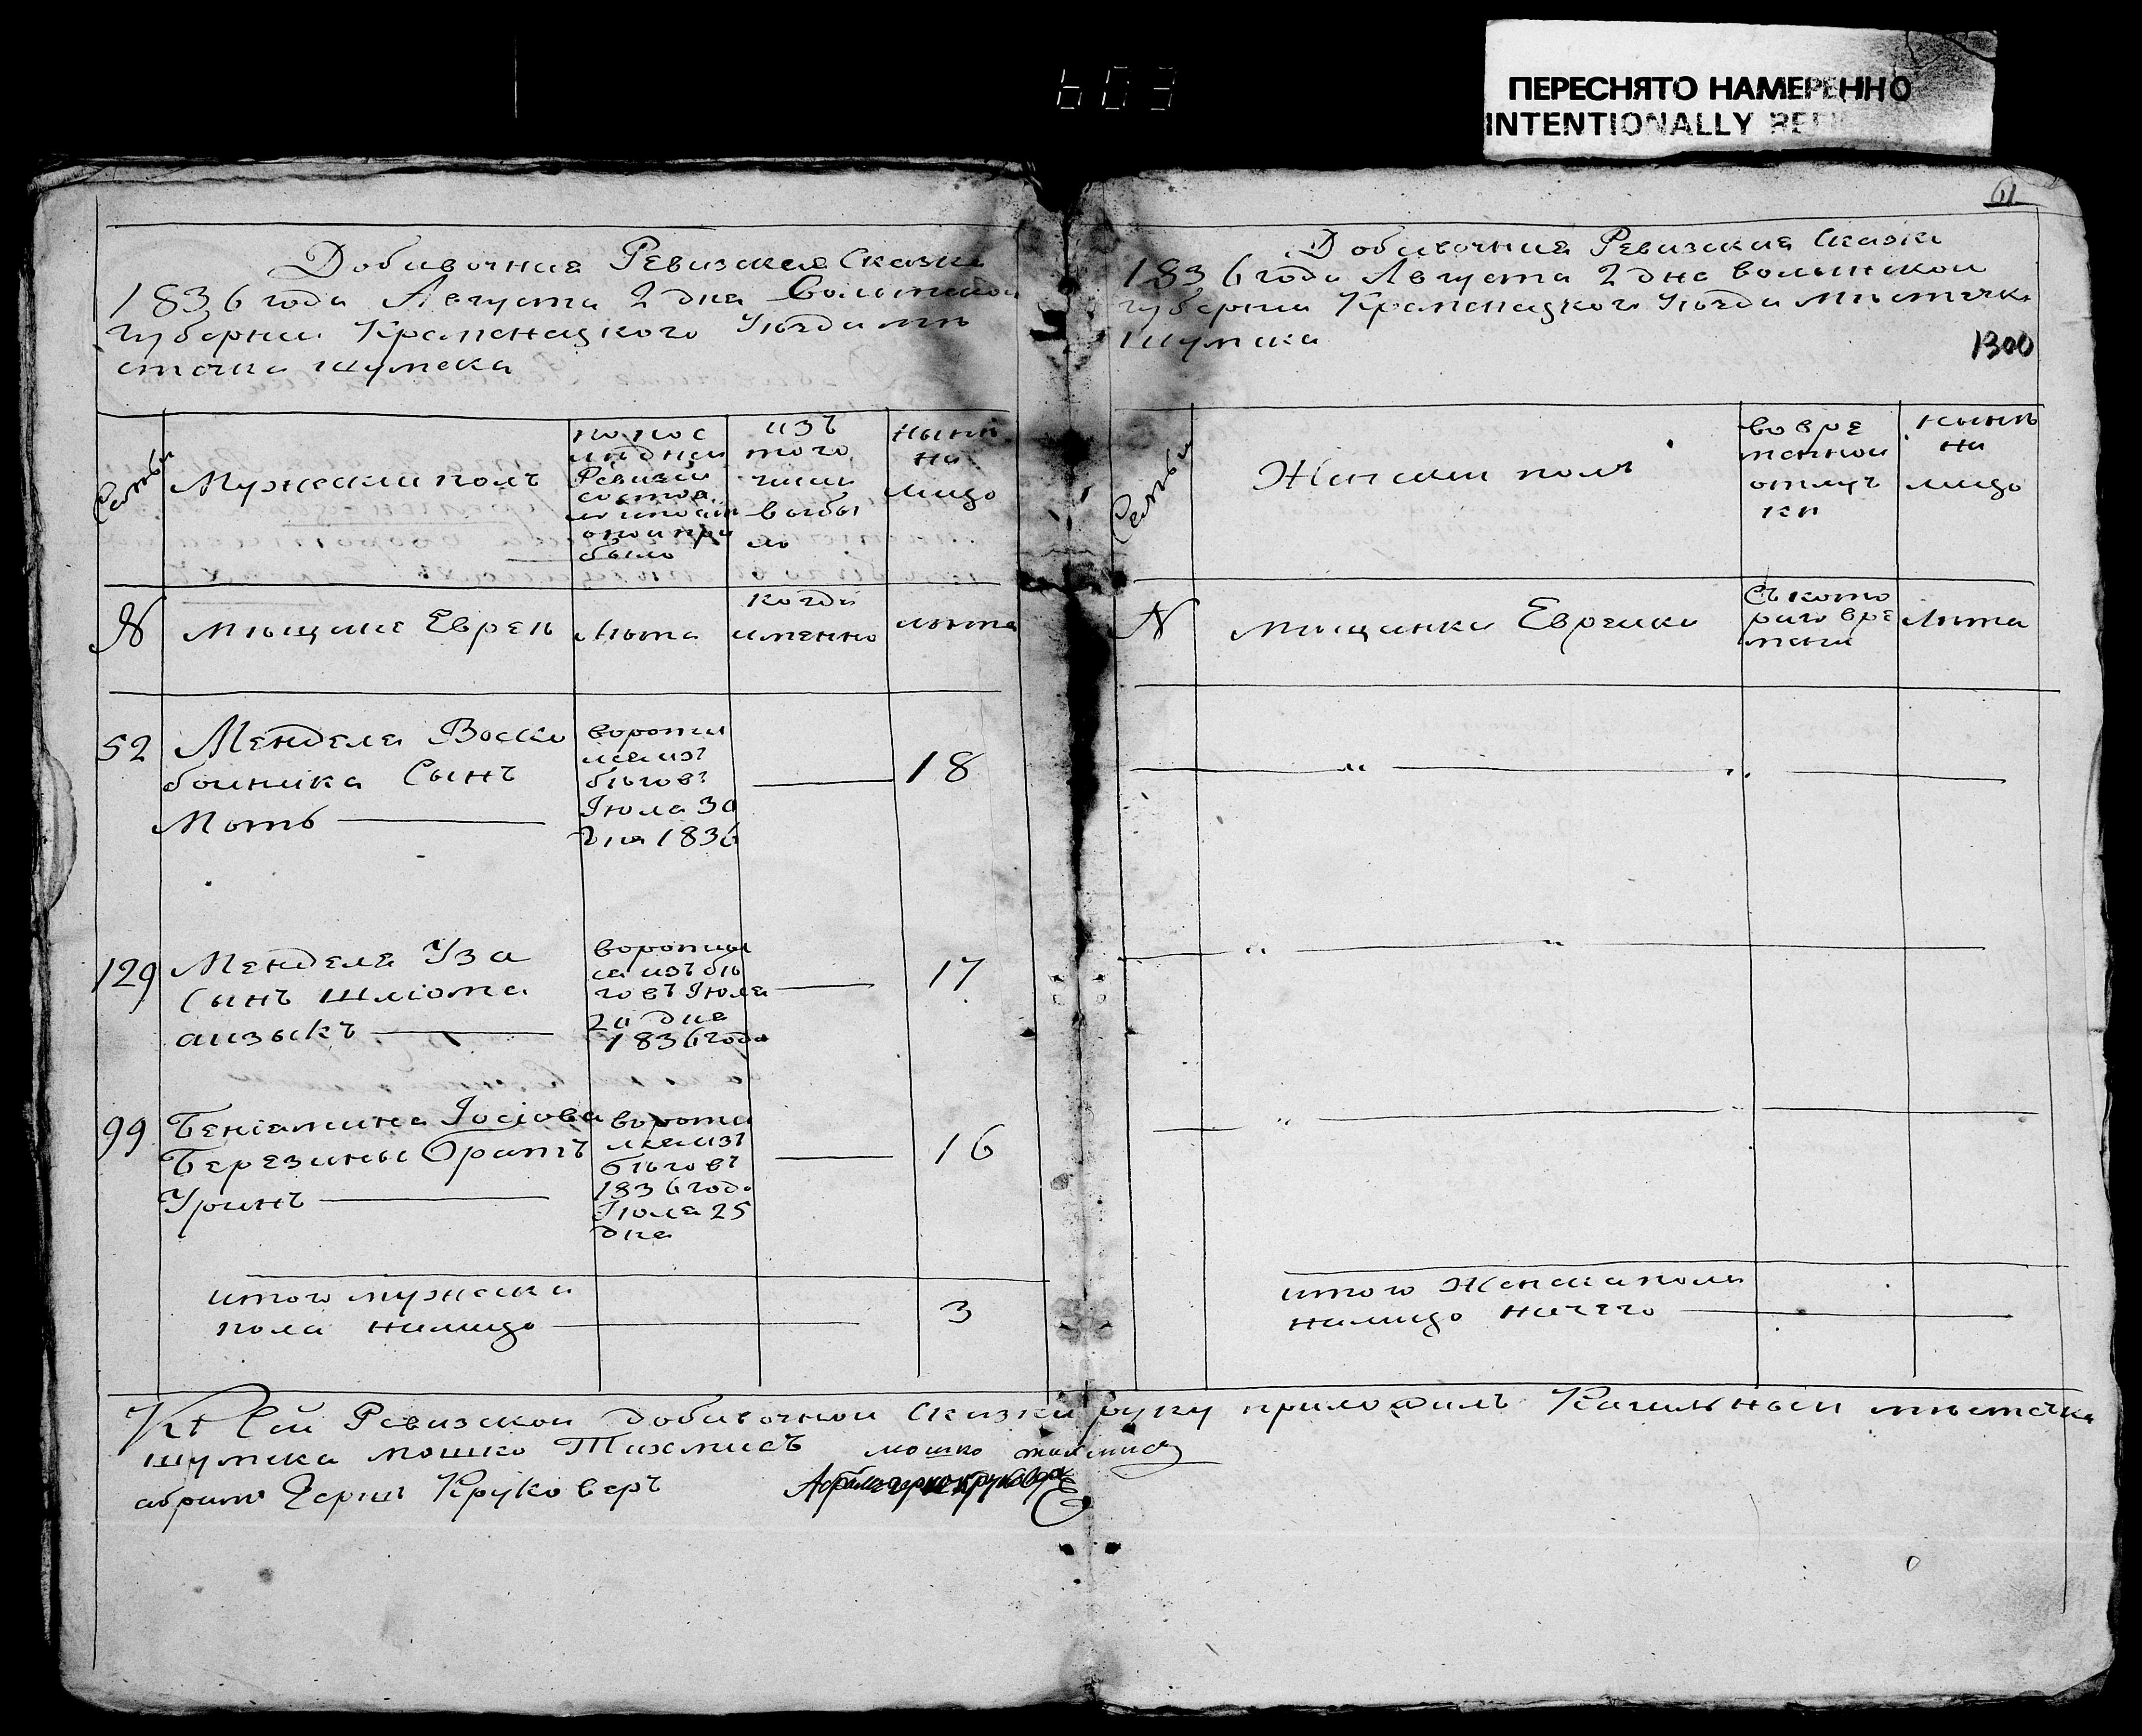 603
ПЕРЕСНЯТО НАМЕРЕННО
INTENTIONALLY
61
Добавочная Ревизская Сказка
1836 года Августа 2 дня Волынской
губернии Кременецкого Уѣзда мѣ
стечка шумска
Семьи
Мужескии полъ
по пос
лѣдней
Ревизіи
состоя
ло и после
оной при
было
изъ
того
числа
выбы
ло
нынѣ
на
лицо
№
мѣщане Евреи
лѣта
когда
именно
лѣта
52
Менделя Воско
боиника Сынъ
Моть
вороти
лся изъ
бѣговъ
Іюля 30
дня 1836
18
129
Менделя Уза
Сынъ шліома
аизыкъ
воротил
ся изъ бѣ
говъ Іюля
20 дня
1836 года
17
99
Беніамина Іосіова
Березины братъ
Уринъ
вороти
лся изъ
бѣговъ
1836 года
Іюля 25
дня
16
итого мужеска
пола налицо
3
Добавочная Ревизская Сказка
1836 года Августа 2 дня волынской
губернии Кременецкого Уѣзда мѣстечка
Шумска
1300
Семьи
Женскии полъ
во вре
менной
отлуч
ки
нынѣ
на
лицо
№
мѣщанки Евреики
Съ кото
раго вре
мени
лѣта
итого Женска пола
налицо ничего
Къ Сей Ревизской добавочной Сказки руку приложилъ Кагальныи мѣстечка
шумска мошко Тихмисъ мошко тихмисъ
абрамъ Герш Круковеръ Абрамъ герш круковеръ